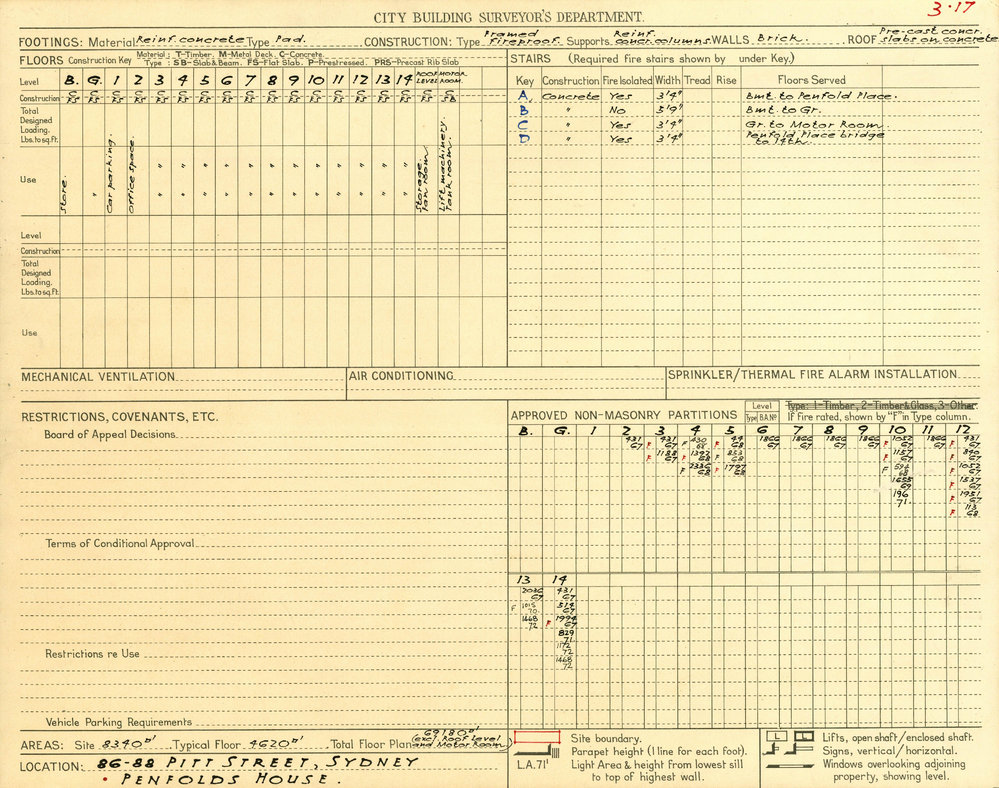 3·17
CITY BUILDING SURVEYOR'S DEPARTMENT.
FOOTINGS: Material Reinf. concrete Type Pad. CONSTRUCTION: Type Framed Fireproof. Supports Reinf. concr. columns. WALLS Brick. ROOF Pre-cast concr. slabs on concrete
FLOORS Construction Key Material; T-Timber, M-Metal Deck, C-Concrete.
Type: SB-Slab & Beam. FS-Flat Slab. P-Prestressed. PRS-Precast Rib Slab
Level B. G. 1 2 3 4 5 6 7 8 9 10 11 12 13 14 ROOF LEVEL MOTOR ROOM.
Construction C/FS C/FS C/FS C/FS C/FS C/FS C/FS C/FS C/FS C/FS C/FS C/FS C/FS C/FS C/FS C/FS C/FS C/SB
Total
Designed
Loading.
Lbs. to sq. ft.
Use Store. " Car parking. Office space. " " " " " " " " " " " " Storage. Fan room Lift machinery. Tank room.
Level
Construction
Total
Designed
Loading.
Lbs. to sq. ft.
Use
STAIRS (Required fire stairs shown by under Key.)
Key Construction Fire Isolated Width Tread Rise Floors Served
A Concrete Yes 3'4" Bmt. to Penfold Place.
B " No 5'9" Bmt. to Gr.
C " Yes 3'4" Gr. to Motor Room.
D " Yes 3'4" Penfold Place bridge to 14th.
MECHANICAL VENTILATION
AIR CONDITIONING
SPRINKLER/THERMAL FIRE ALARM INSTALLATION
RESTRICTIONS, COVENANTS, ETC.
Board of Appeal Decisions
Terms of Conditional Approval
Restrictions re Use
Vehicle Parking Requirements
APPROVED NON-MASONRY PARTITIONS Level Type B.A.Nº Type: 1-Timber, 2-Timber & Glass, 3-Other.
If Fire rated, shown by "F" in Type column.
B. G. 1 2 3 4 5 6 7 8 9 10 11 12
431/67 F 431/67 F 430/68 F 44/68 1866/67 1866/67 1866/67 1866/67 F 1052/67 1866/67 F 431/67
F 1188/67 F 1392/68 F 853/68 F 1157/67 F 840/67
F 2336/68 F 1797/68 F 594/68 F 1052/67
1655/69 F 1537/67
196/71. F 1951/67
F 113/68
13 14
2036/67 431/67
F 1015/70 514/67
1468/72 F 1994/67
829/71
1172/72
1468/72
AREAS: Site 8340 □' Typical Floor 4620 □' Total Floor Plan 69180 □' (excl. Roof Level and Motor Room)
LOCATION: 86-88 PITT STREET, SYDNEY
• PENFOLDS HOUSE.
Site boundary.
Parapet height (1 line for each foot).
L.A. 71' Light Area & height from lowest sill
to top of highest wall.
L L Lifts, open shaft/enclosed shaft.
Signs, vertical/horizontal.
Windows overlooking adjoining
property, showing level.